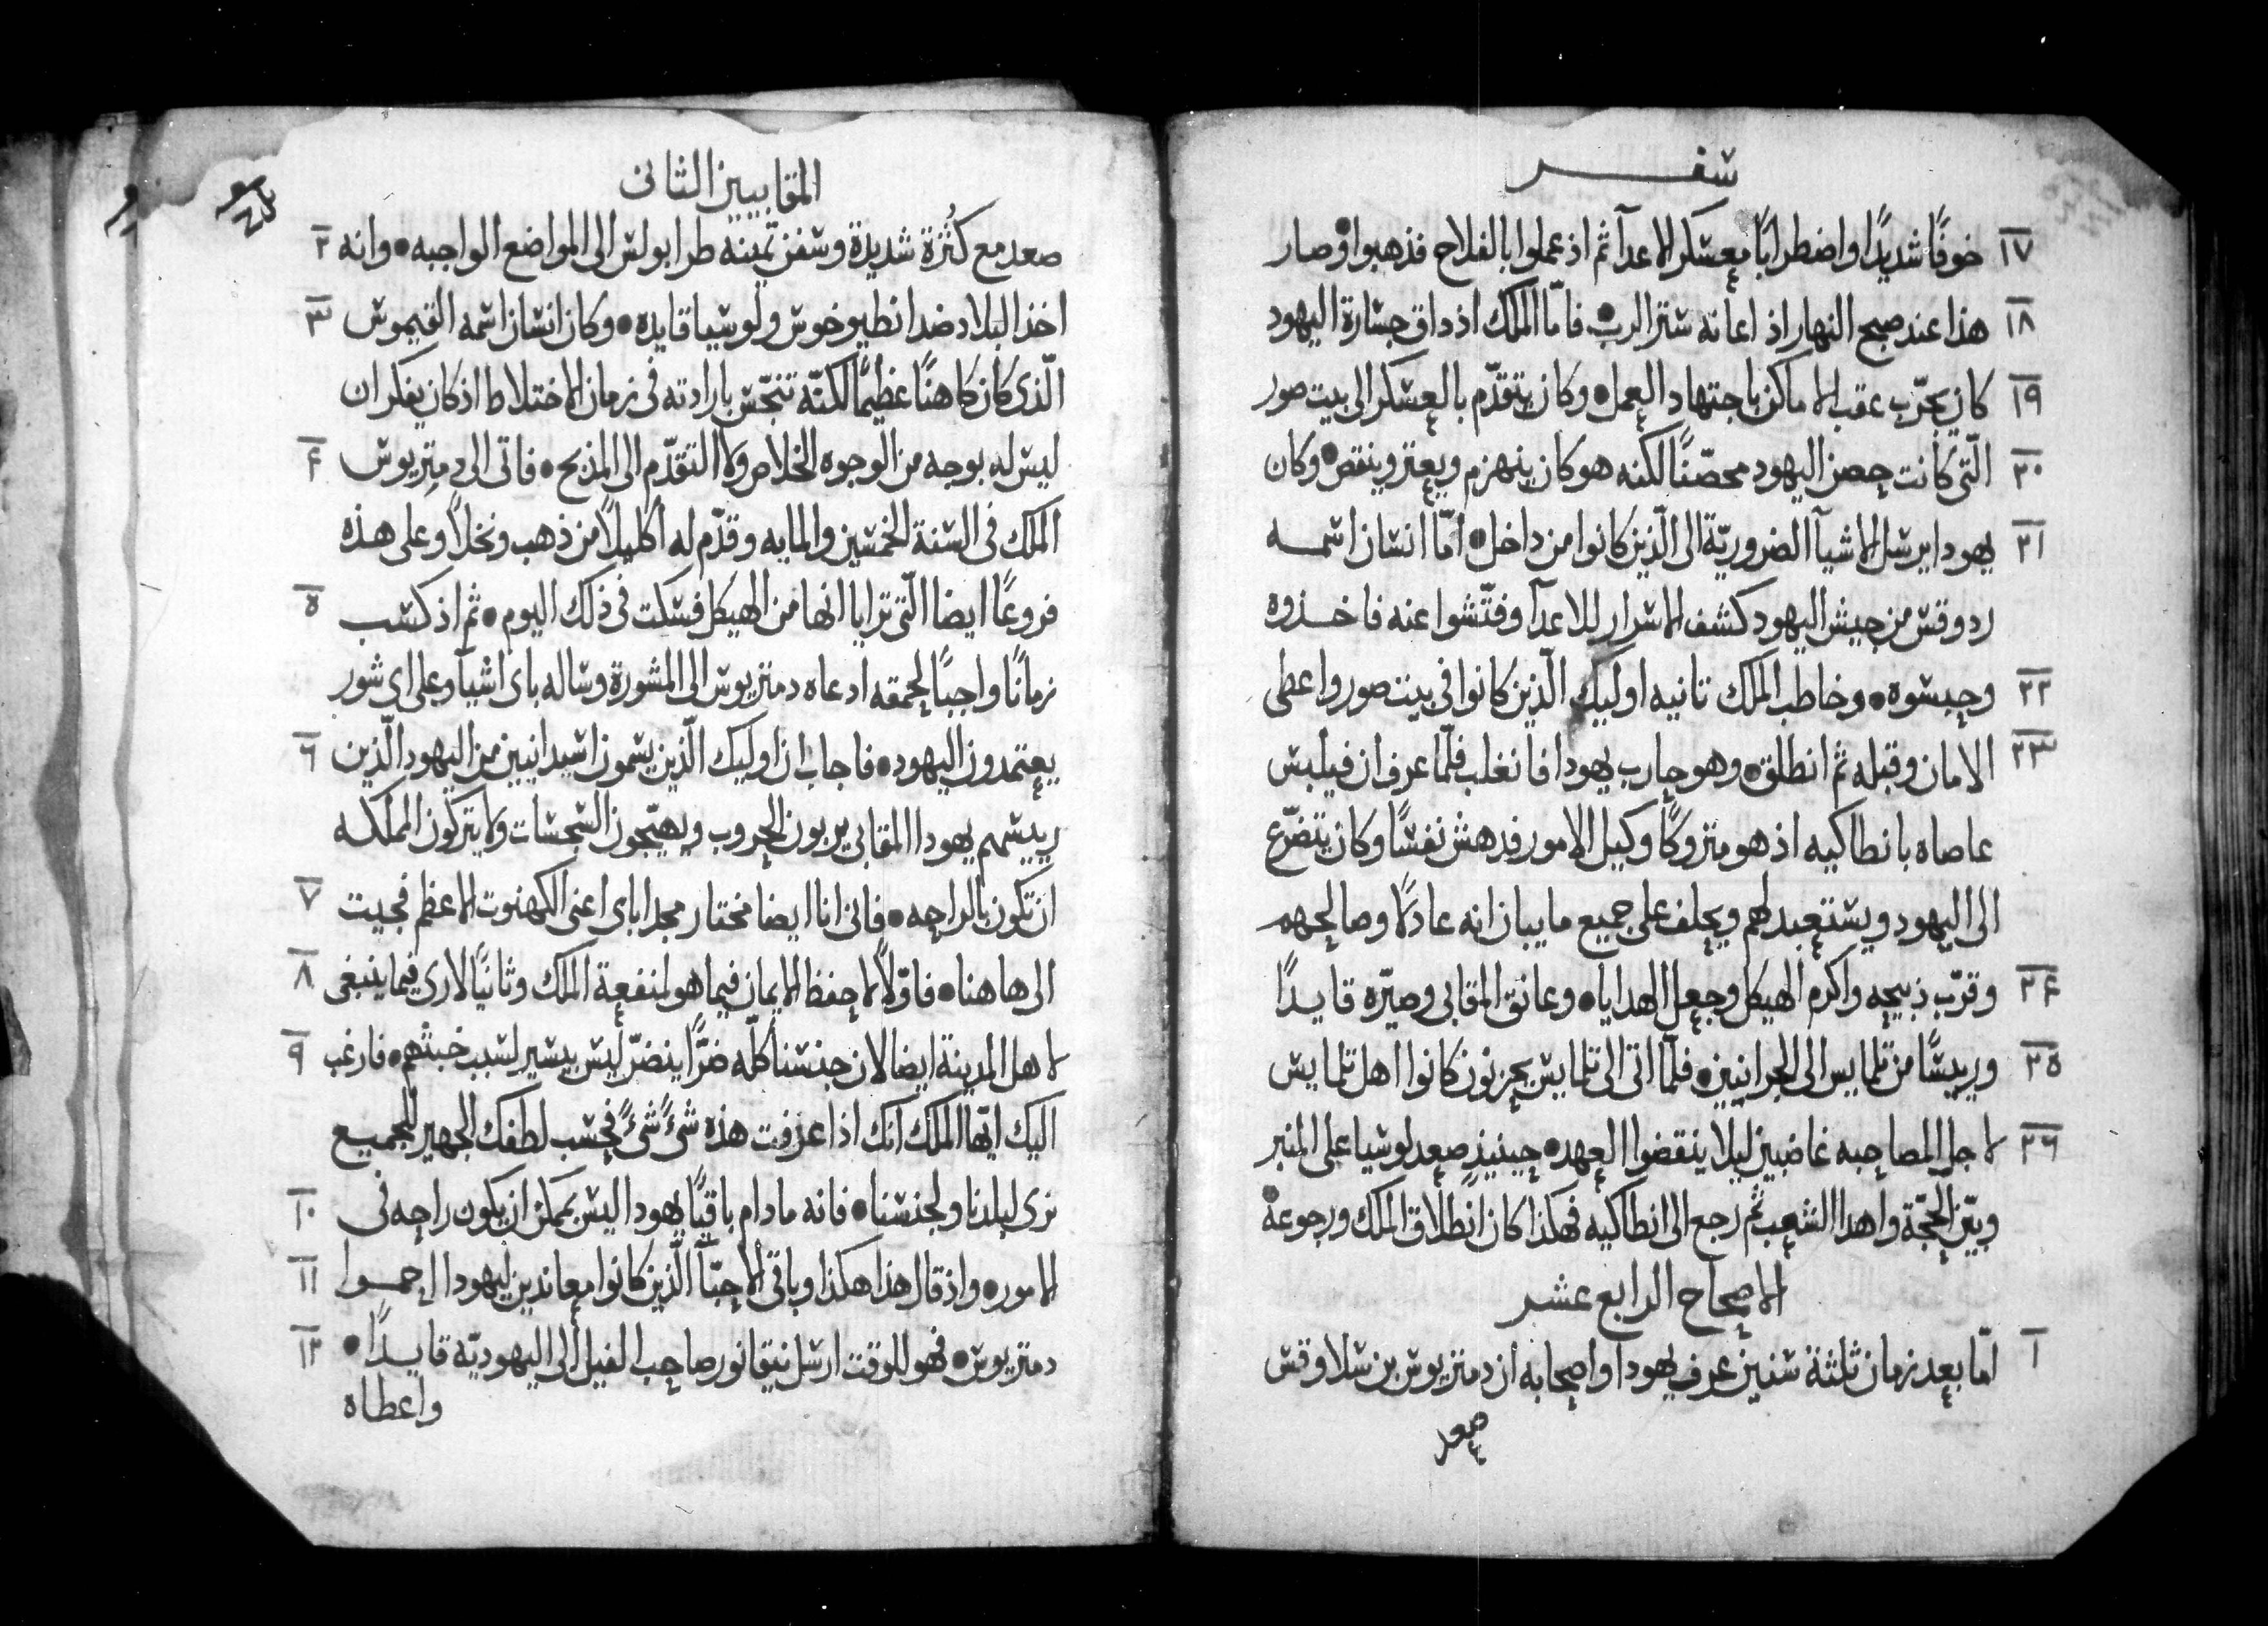 سفر
١٧ خوفًا شديدًا واضطرابًا معسكر الاعدآ ثم اذ عملوا بالفلاح فذهبوا وصار
١٨ هذا عند صبح النهار اذ اعانه ستر الرب فامّا الملك اذ داق جسارة اليهود
١٩ كان يجرّب عقب الاماكن باجتهاد العمل وكان يتقدّم بالعسكر الى بيت صور
٢٠ الّتي كانت حصن اليهود محصّنًا لكنه هو كان ينهزم ويعتر وينقص وكان
٢١ يهودا يرسل الاشيآ الضروريّة الى الّذين كانوا من داخل امّا انسان اسمه
ردوقس من جيش اليهود كشف الاسرار للاعدآ وفتّشوا عنه فاخذوه
٢٢ وحبسوه وخاطب الملك تانيه اوليك الّذين كانوا في بيت صور واعطى
٢٣ الامان وقبله ثم انطلق وهو حارب يهودا فانغلب فلمّا عرف ان فيلبس
عاصاه بانطاكيه اذ هو متروكًا وكيل الامور فدهش نفسًا وكان يتضرّع
الى اليهود ويستعبد لهم ويحلف على جميع ما يبان انه عادلا وصالحهم
٢٤ وقرّب ذبيحه واكرم الهيكل وجعل الهدايا وعانق المقابي وصيّره قايدًا
٢٥ ورييسًا من تلمايس الى الجرانيين فلمّا اتى الى تلمايس يحزنون كانوا اهل تلمايس
٢٦ لاجل المصاحبه غاضبين ليلا ينقضوا العهد حينيذٍ صعد لوسيا على المنبر
وبيّن الحجّة واهدا الشعب ثم رجع الى انطاكيه فهكذا كان انطلاق الملك ورجوعه
الاصحاح الرابع عشر
١ امّا بعد زمان ثلثة سنين عرف يهودا واصحابه ان دمتريوس بن سلاوقس
صعد
المقابيين الثاني
صعد مع كثرة شديدة وسفن تمينه طرابولس الى المواضع الواجبه وانه ٢
اخذ البلاد ضد انطيوخوس ولوسيا قايده وكان انسان اسمه القيموس ٣
الّذي كان كاهنًا عظيمًا لكنّه تنجّس بارادته في زمان الاختلاط اذ كان يفكر ان
ليس له بوجه من الوجوه الخلاص ولا التقدّم الى المذبح فاتى الى دمتريوس ٤
الملك في السنة الخمسين والمايه وقدّم له اكليلًا من ذهب ونخلًا وعلى هذه
فروعًا ايضا الّتي ترايا انها من الهيكل فسكت في ذلك اليوم ثم اذ كسب ٥
زمانًا واجبًا لحمقه ادعاه دمتريوس الى المشورة وساله باى اشيآ وعلى اى شور
يعتمدون اليهود فاجاب ان اوليك الّذين يسمون اسيدانيين من اليهود الّذين ٦
رييسهم يهودا المقابي يربون الحروب ويهيّجون السجسات ولا يتركون المملكه
ان تكون بالراحه فاني انا ايضا مختار مجد اباي اعني الكهنوت الاعظم فجيت ٧
الى هاهنا فاوّلًا لاحفظ الايمان فيما هو لمنفعة الملك وثانيًا لارى فيما ينبغي ٨
لاهل المدينة ايضا لان جنسنا كلّه ضرًّا ينضرّ ليس بيسير لسبب خبثهم فارغب ٩
اليك ايّها الملك انك اذا عرفت هذه شيءً شيءً فحسب لطفك الجهير للجميع
نرى لبلدنا ولجنسنا فانه ما دام باقيًا يهودا ليس يمكن ان يكون راحه في ١٠
الامور واذ قال هذا هكذا وباقي الاحبّآ الّذين كانوا معاندين ليهودا احموا ١١
دمتريوس فهو للوقت ارسل نيقانور صاحب الفيل الى اليهوديّه قايدًا ١٢
واعطاه